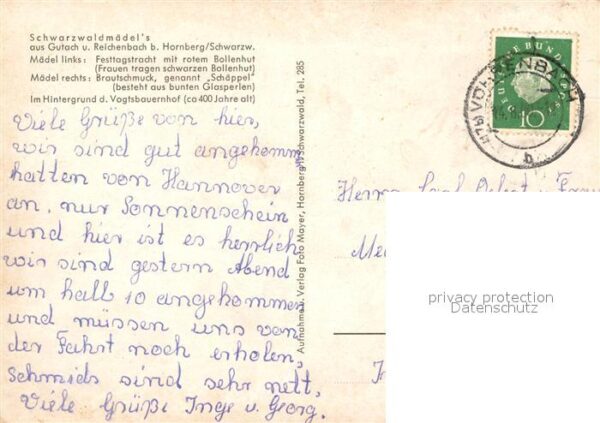 Schwarzwaldmädel's
aus Gutach u. Reichenbach b. Hornberg/Schwarzw.
Mädel links: Festtagstracht mit rotem Bollenhut
(Frauen tragen schwarzen Bollenhut)
Mädel rechts: Brautschmuck, genannt „Schäppel"
(besteht aus bunten Glasperlen)
Im Hintergrund d. Vogtsbauernhof (ca 400 Jahre alt)
Viele Grüße von hier,
wir sind gut angekomm
hatten von Hannover
an, nur Sonnenschein
und hier ist es herrlich
wir sind gestern Abend
um halb 10 angekommen
und müssen uns von
der Fahrt noch erholen,
Schmids sind sehr nett,
Viele Grüße Inge u. Georg.
Aufnahme u. Verlag Foto Mayer, Hornberg/Schwarzwald, Tel. 285
DEUTSCHE BUNDESPOST
10
b
Herrn
u. Frau
privacy protection
Datenschutz